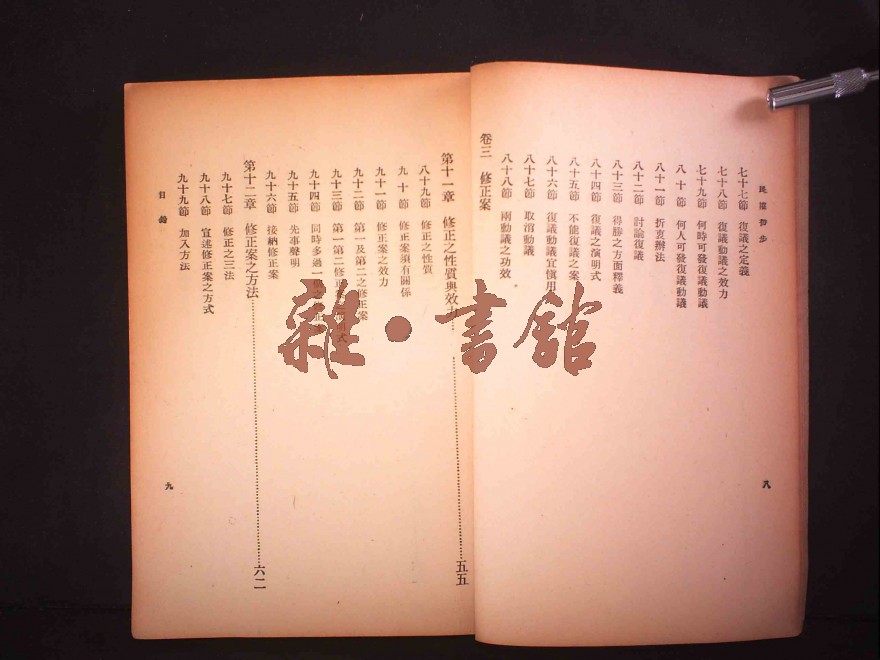 民權初步
七十七節 復議之定義
七十八節 復議動議之效力
七十九節 何時可發復議動議
八十節 何人可發復議動議
八十一節 折衷辦法
八十二節 討論復議
八十三節 得勝之方面釋義
八十四節 復議之演明式
八十五節 不能復議之案
八十六節 復議動議宜慎用
八十七節 取消動議
八十八節 兩動議之功效
卷三 修正案
八
第十一章 修正之性質與效力 五五
八十九節 修正之性質
九十節 修正案須有關係
九十一節 修正案之效力
九十二節 第一及第二之修正案
九十三節 第一第二修正案之演明式
九十四節 同時多過一個之修正案
九十五節 先事聲明
九十六節 接納修正案
第十二章 修正案之方法 六二
九十七節 修正之三法
九十八節 宣述修正案之方式
九十九節 加入方法
目錄
九
雜·書館